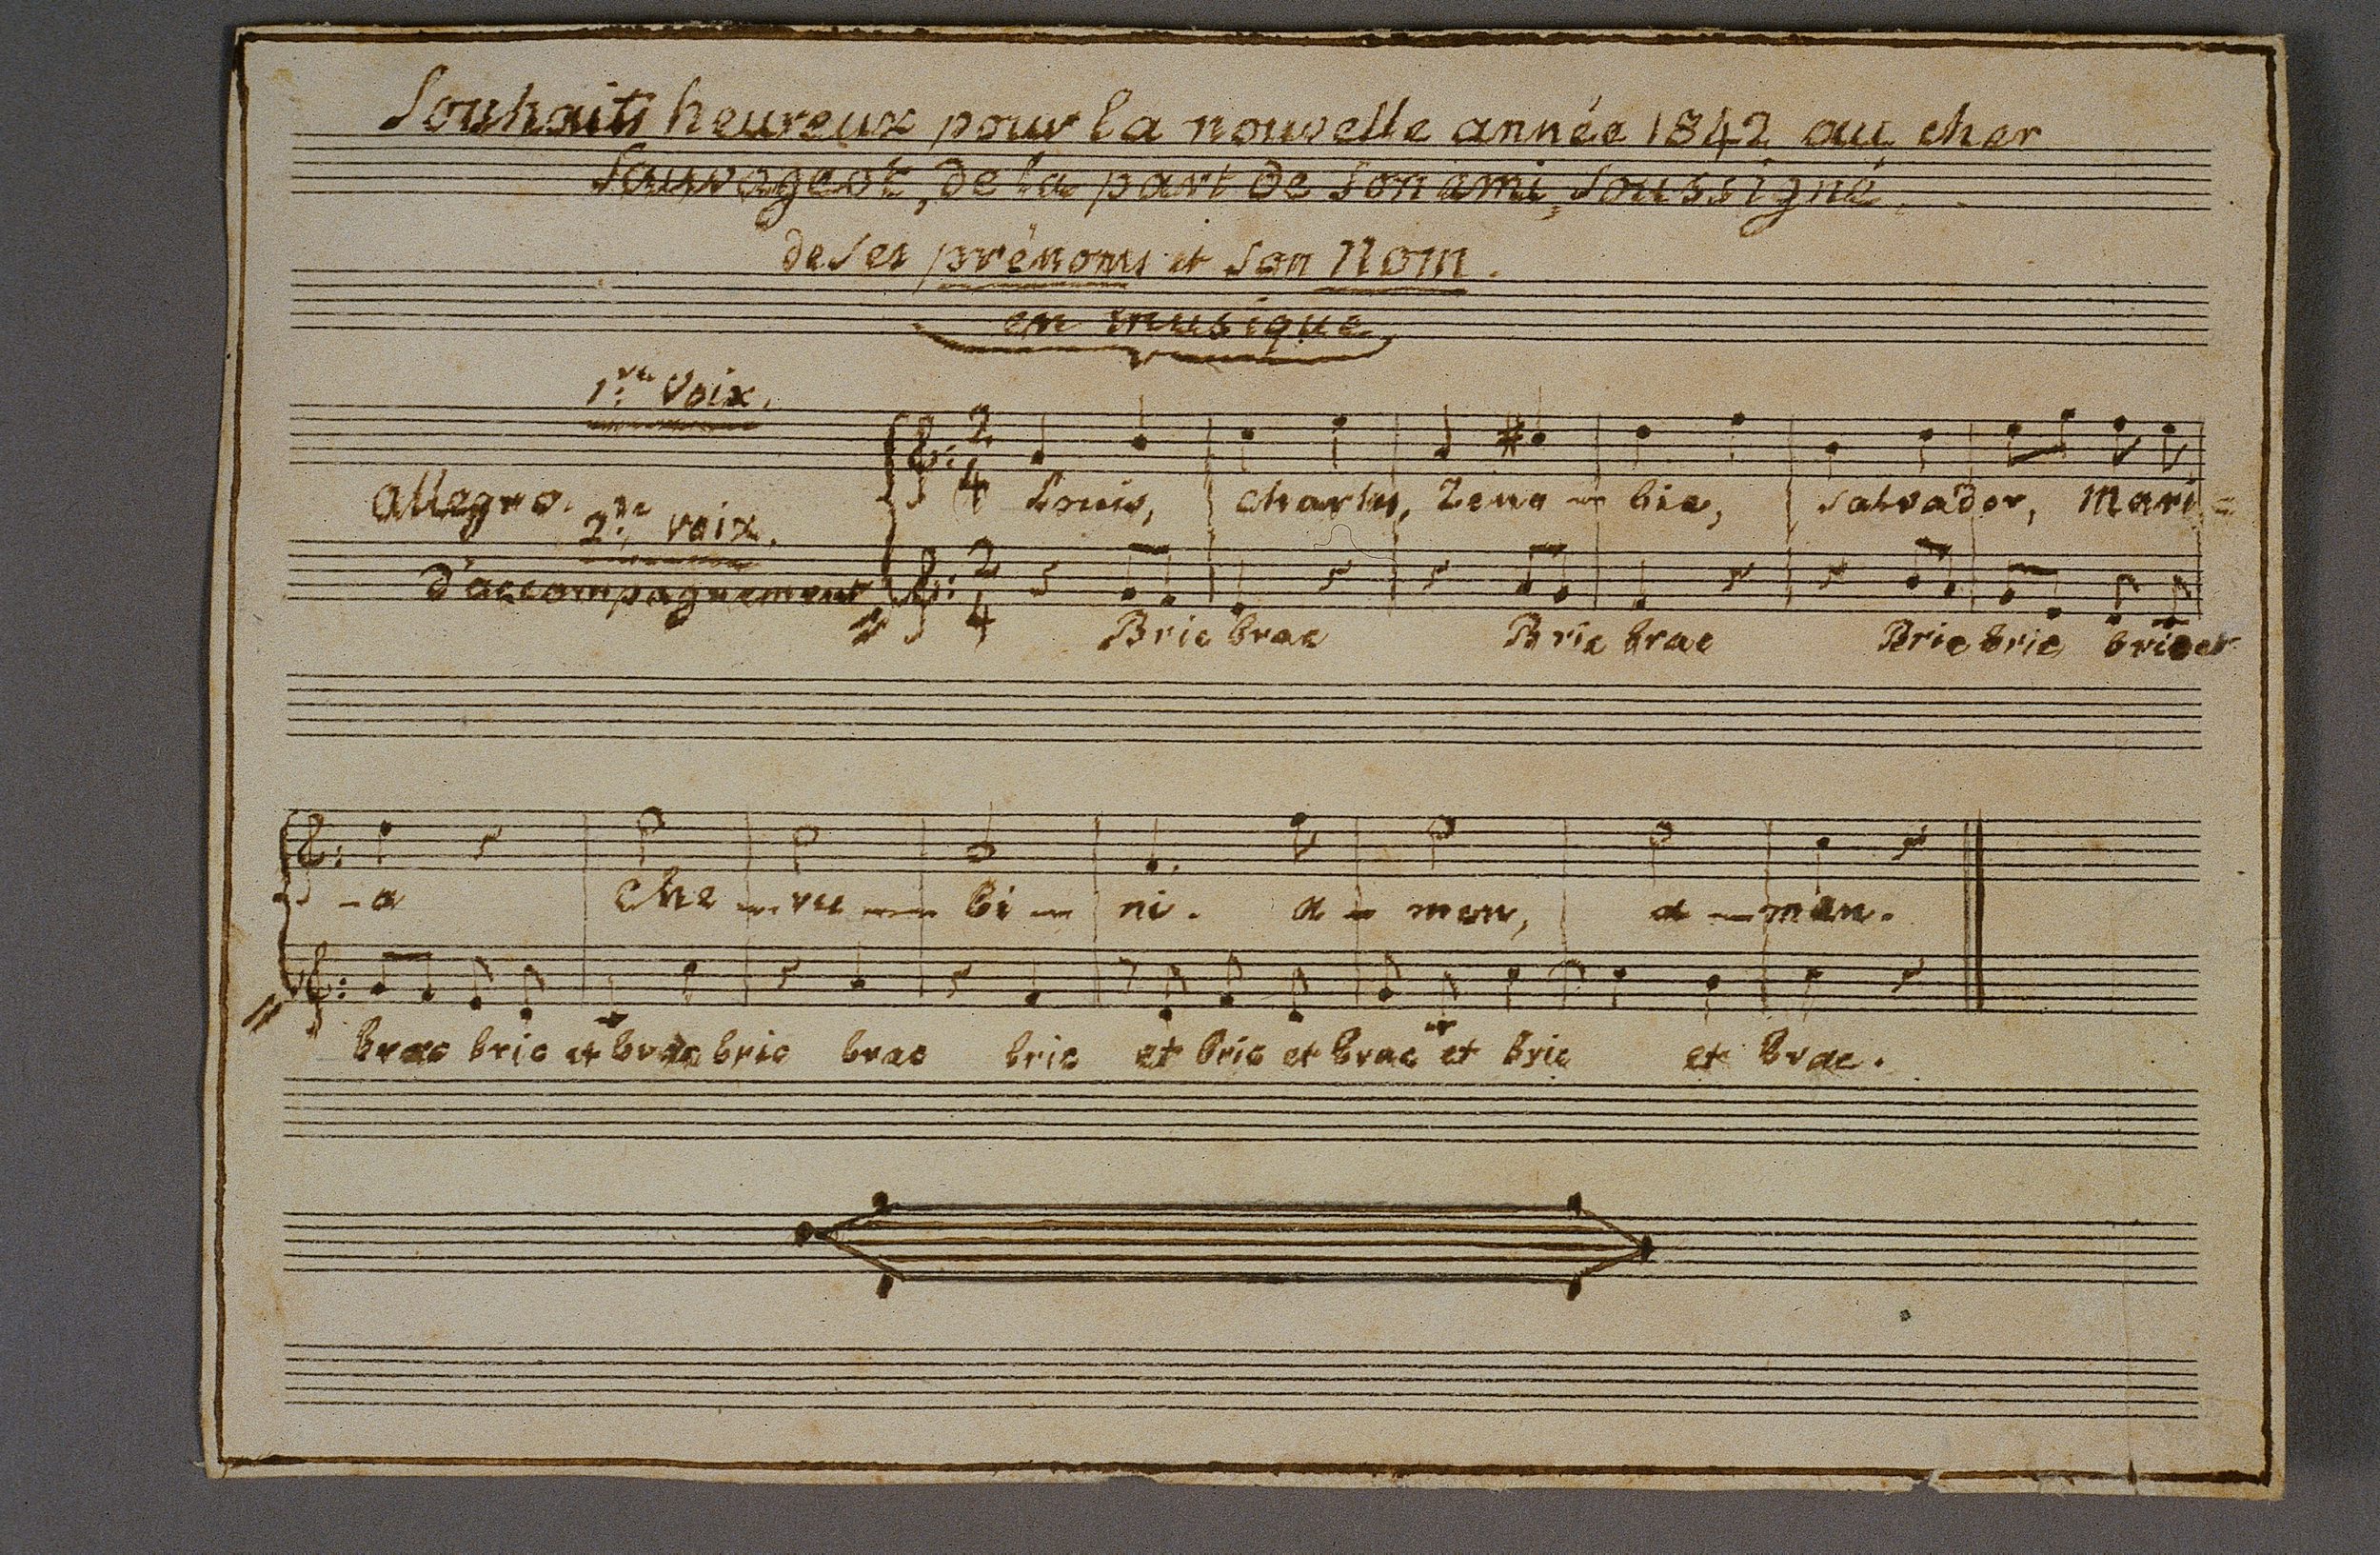 Souhaits heureux pour la nouvelle année 1842 au cher
Sauvageot, de la part de son ami, soussigné
de ses prénoms et son Nom.
en musique
1re Voix.
2 4
Louis, Charles, Zeno - bie, Salvador, Mari =
allegro.
2de voix.
d'accompagnement
2 4
Bric brac Bric brac Bric bric bric et
- a Che - ru - bi - ni. a - men, a - men.
brac bric et brac bric brac bric et bric et brac et bric et brac.